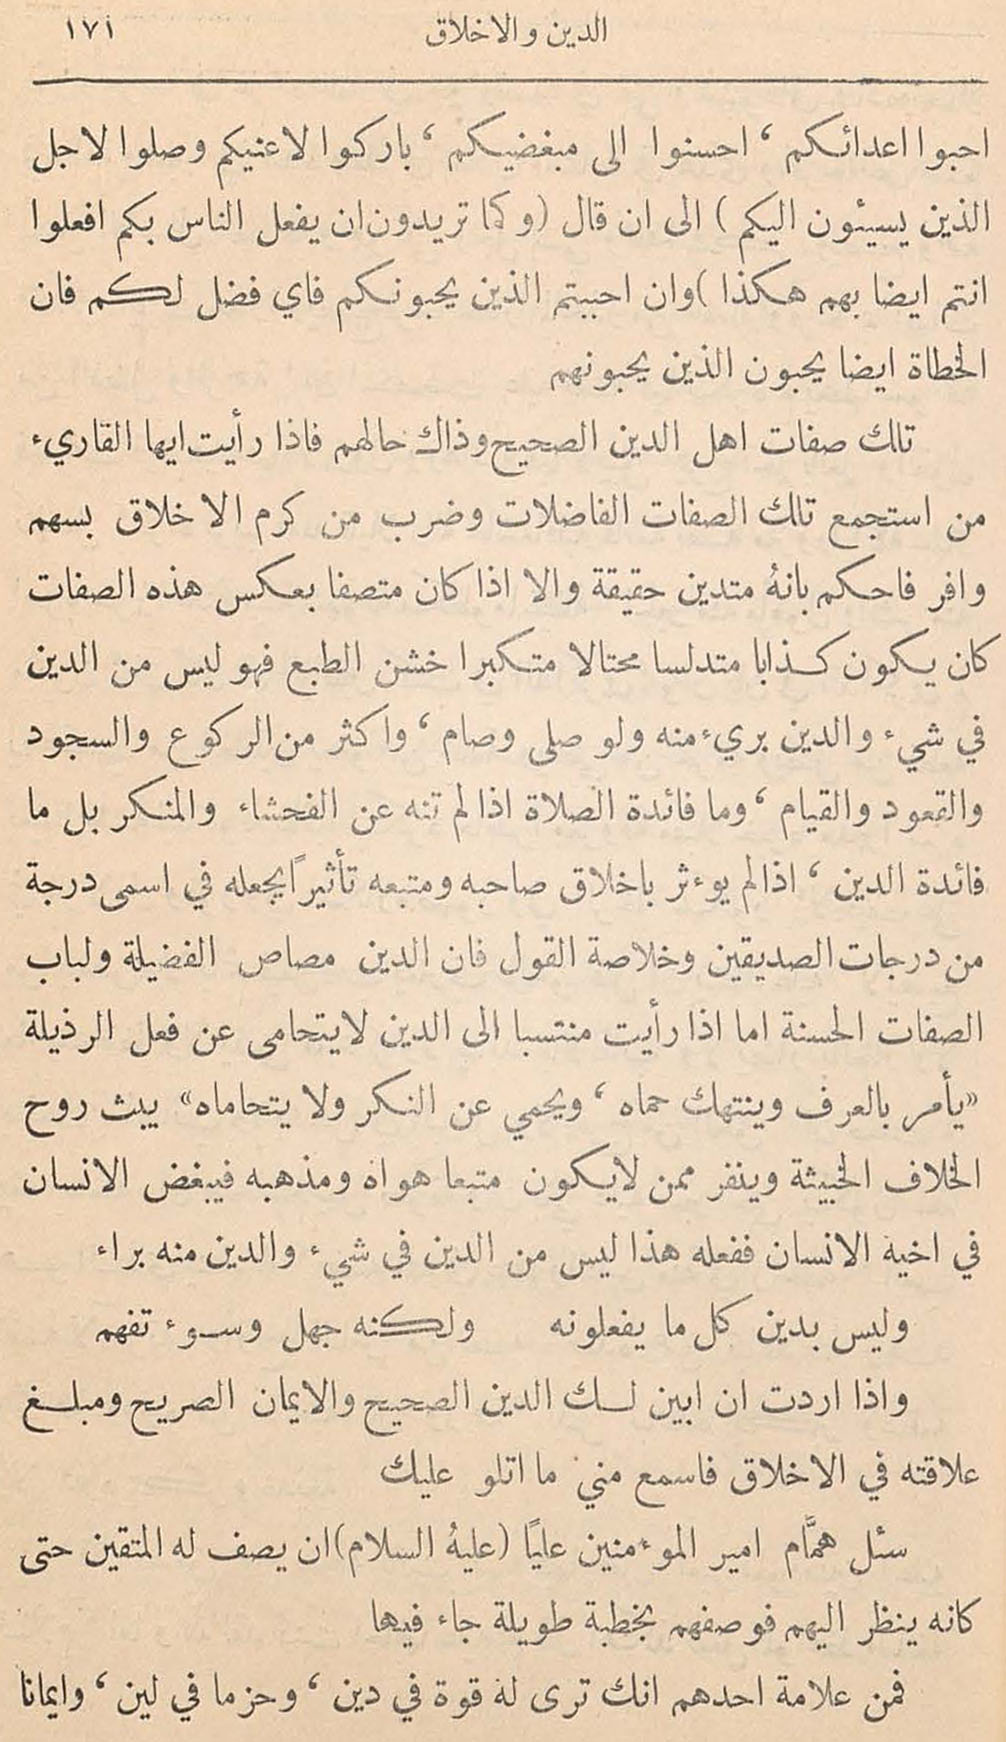 الدين والاخلاق ١٧١
احبوا اعدائكم ، احسنوا الى مبغضيكم ، باركوا لاعنيكم وصلوا لاجل
الذين يسيئون اليكم ) الى ان قال (وكما تريدون ان يفعل الناس بكم افعلوا
انتم ايضا بهم هكذا )وان احببتم الذين يحبونكم فاي فضل لكم فان
الخطاة ايضا يحبون الذين يحبونهم
تلك صفات اهل الدين الصحيح وذاك حالهم فاذا رأيت ايها القاريء
من استجمع تلك الصفات الفاضلات وضرب من كرم الاخلاق بسهم
وافر فاحكم بانهُ متدين حقيقة والا اذا كان متصفا بعكس هذه الصفات
كان يكون كذابا متدلسا محتالا متكبرا خشن الطبع فهو ليس من الدين
في شيء والدين بريء منه ولو صلى وصام ، واكثر من الركوع والسجود
والقعود والقيام ، وما فائدة الصلاة اذا لم تنه عن الفحشاء والمنكر بل ما
فائدة الدين ، اذا لم يوءثر باخلاق صاحبه ومتبعه تأثيراً يجعله في اسمى درجة
من درجات الصديقين وخلاصة القول فان الدين مصاص الفضيلة ولباب
الصفات الحسنة اما اذا رأيت منتسبا الى الدين لايتحامى عن فعل الرذيلة
«يأمر بالعرف وينتهك حماه ، ويحمي عن النكر ولا يتحاماه» يبث روح
الخلاف الخبيثة وينفر ممن لايكون متبعا هواه ومذهبه فيبغض الانسان
في اخيه الانسان ففعله هذا ليس من الدين في شيء والدين منه براء
وليس بدين كل ما يفعلونه ولكنه جهل وسوء تفهم
واذا اردت ان ابين لك الدين الصحيح والايمان الصريح ومبلغ
علاقته في الاخلاق فاسمع مني ما اتلو عليك
سئل همَّام امير الموءمنين علياً (عليهُ السلام)ان يصف له المتقين حتى
كانه ينظر اليهم فوصفهم بخطبة طويلة جاء فيها
فمن علامة احدهم انك ترى له قوة في دين ، وحزما في لين ، وايمانا